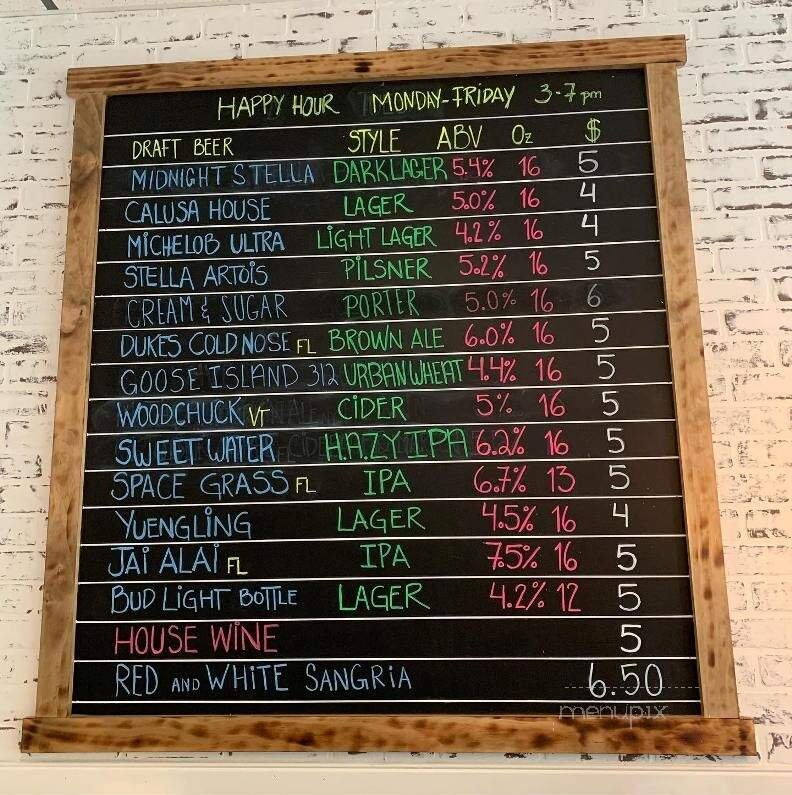 HAPPY HOUR MONDAY-FRIDAY 3-7 pm
DRAFT BEER STYLE ABV Oz $
MIDNIGHT STELLA DARK LAGER 5.4% 16 5
CALUSA HOUSE LAGER 5.0% 16 4
MICHELOB ULTRA LIGHT LAGER 4.2% 16 4
STELLA ARTOIS PILSNER 5.2% 16 5
CREAM & SUGAR PORTER 5.0% 16 6
DUKES COLD NOSE FL BROWN ALE 6.0% 16 5
GOOSE ISLAND 312 URBAN WHEAT 4.4% 16 5
WOODCHUCK VT CIDER 5% 16 5
SWEET WATER H.A.ZY IPA 6.2% 16 5
SPACE GRASS FL IPA 6.7% 13 5
YUENGLING LAGER 4.5% 16 4
JAI ALAI FL IPA 7.5% 16 5
BUD LIGHT BOTTLE LAGER 4.2% 12 5
HOUSE WINE 5
RED AND WHITE SANGRIA 6.50
menupix